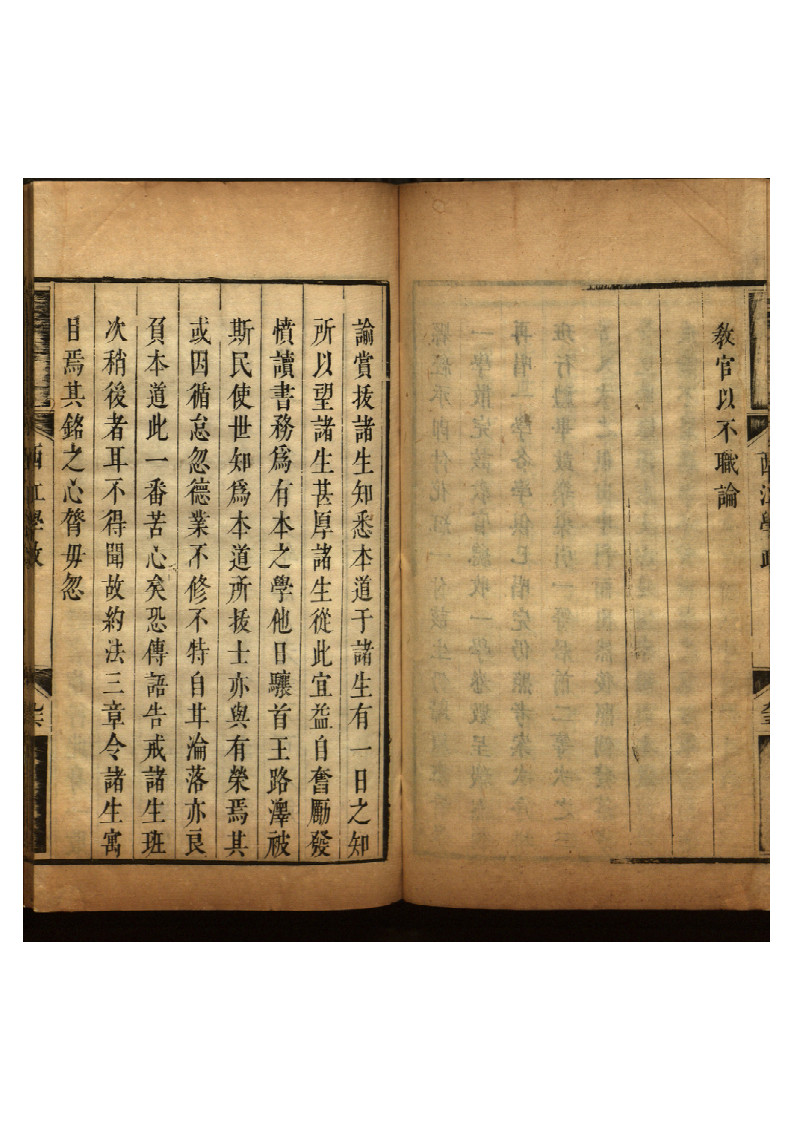 教官以不職論
論賞拔諸生知悉本道于諸生有一日之知
所以望諸生甚厚諸生從此宜益自奮勵發
憤讀書務爲有本之學他日驤首王路澤被
斯民使世知爲本道所拔士亦與有榮焉其
或因循怠忽德業不修不特自甘淪落亦良
負本道此一番苦心矣恐傳語告戒諸生班
次稍後者耳不得聞故約法三章令諸生寓
目焉其銘之心膂毋忽
西江學政